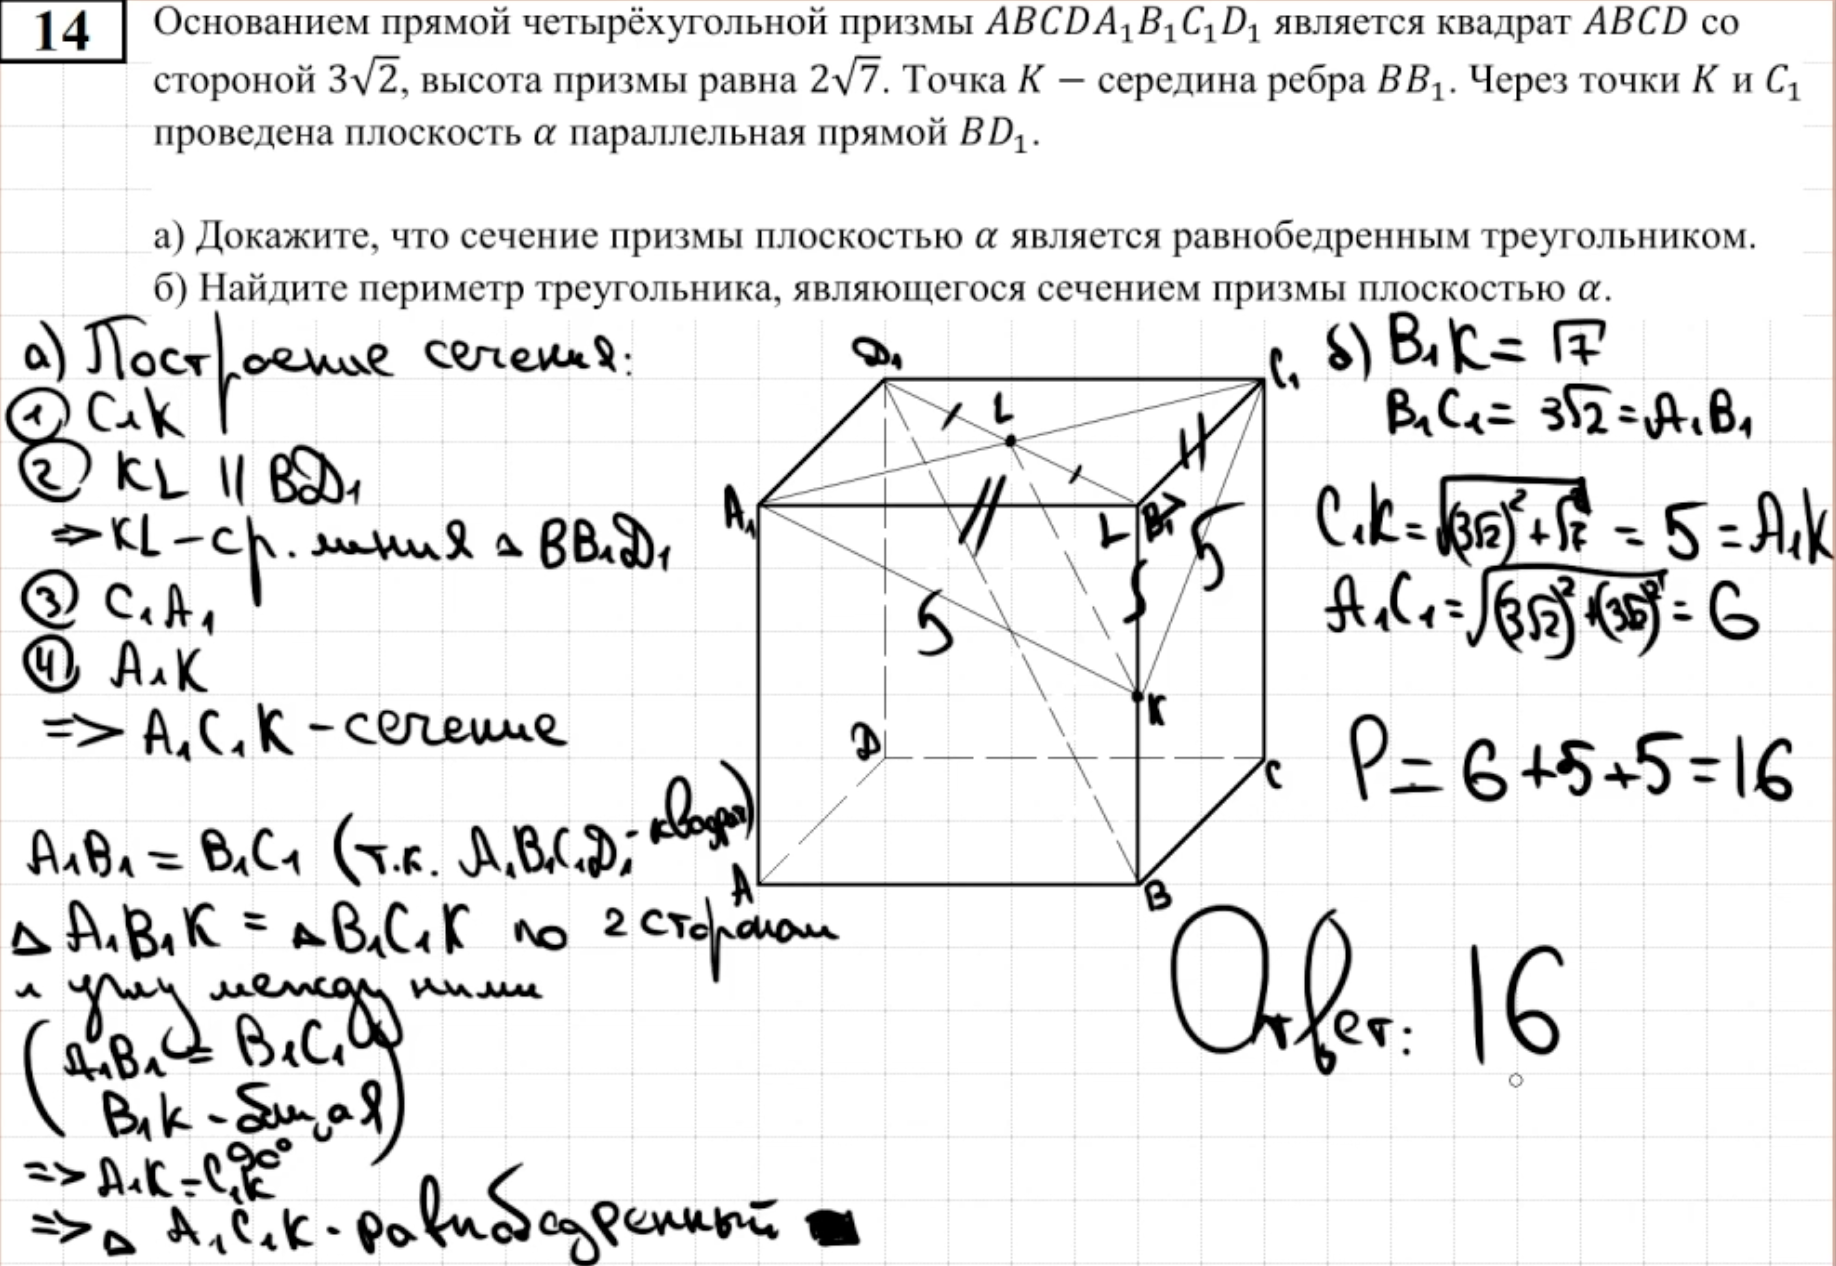 14
Основанием прямой четырёхугольной призмы ABCDA₁B₁C₁D₁ является квадрат ABCD со
стороной 3√2, высота призмы равна 2√7. Точка K − середина ребра BB₁. Через точки K и C₁
проведена плоскость α параллельная прямой BD₁.
а) Докажите, что сечение призмы плоскостью α является равнобедренным треугольником.
б) Найдите периметр треугольника, являющегося сечением призмы плоскостью α.
а) Построение сечения:
① C₁K
② KL || BD₁
=> KL – ср. линия △ BB₁D₁
③ C₁A₁
④ A₁K
=> A₁C₁K – сечение
A₁B₁ = B₁C₁ (т.к. A₁B₁C₁D₁ - квадрат)
△ A₁B₁K = △ B₁C₁K по 2 сторонам
и углу между ними
(A₁B₁ = B₁C₁
B₁K - общая)
90°
=> A₁K = C₁K
=> △ A₁C₁K - равнобедренный
D₁
L
C₁
A₁
L B₁
5
5
K
D
C
A
B
б) B₁K = √7
B₁C₁ = 3√2 = A₁B₁
C₁K = √((3√2)² + √7²) = 5 = A₁K
A₁C₁ = √((3√2)² + (3√2)²) = 6
P = 6 + 5 + 5 = 16
Ответ: 16